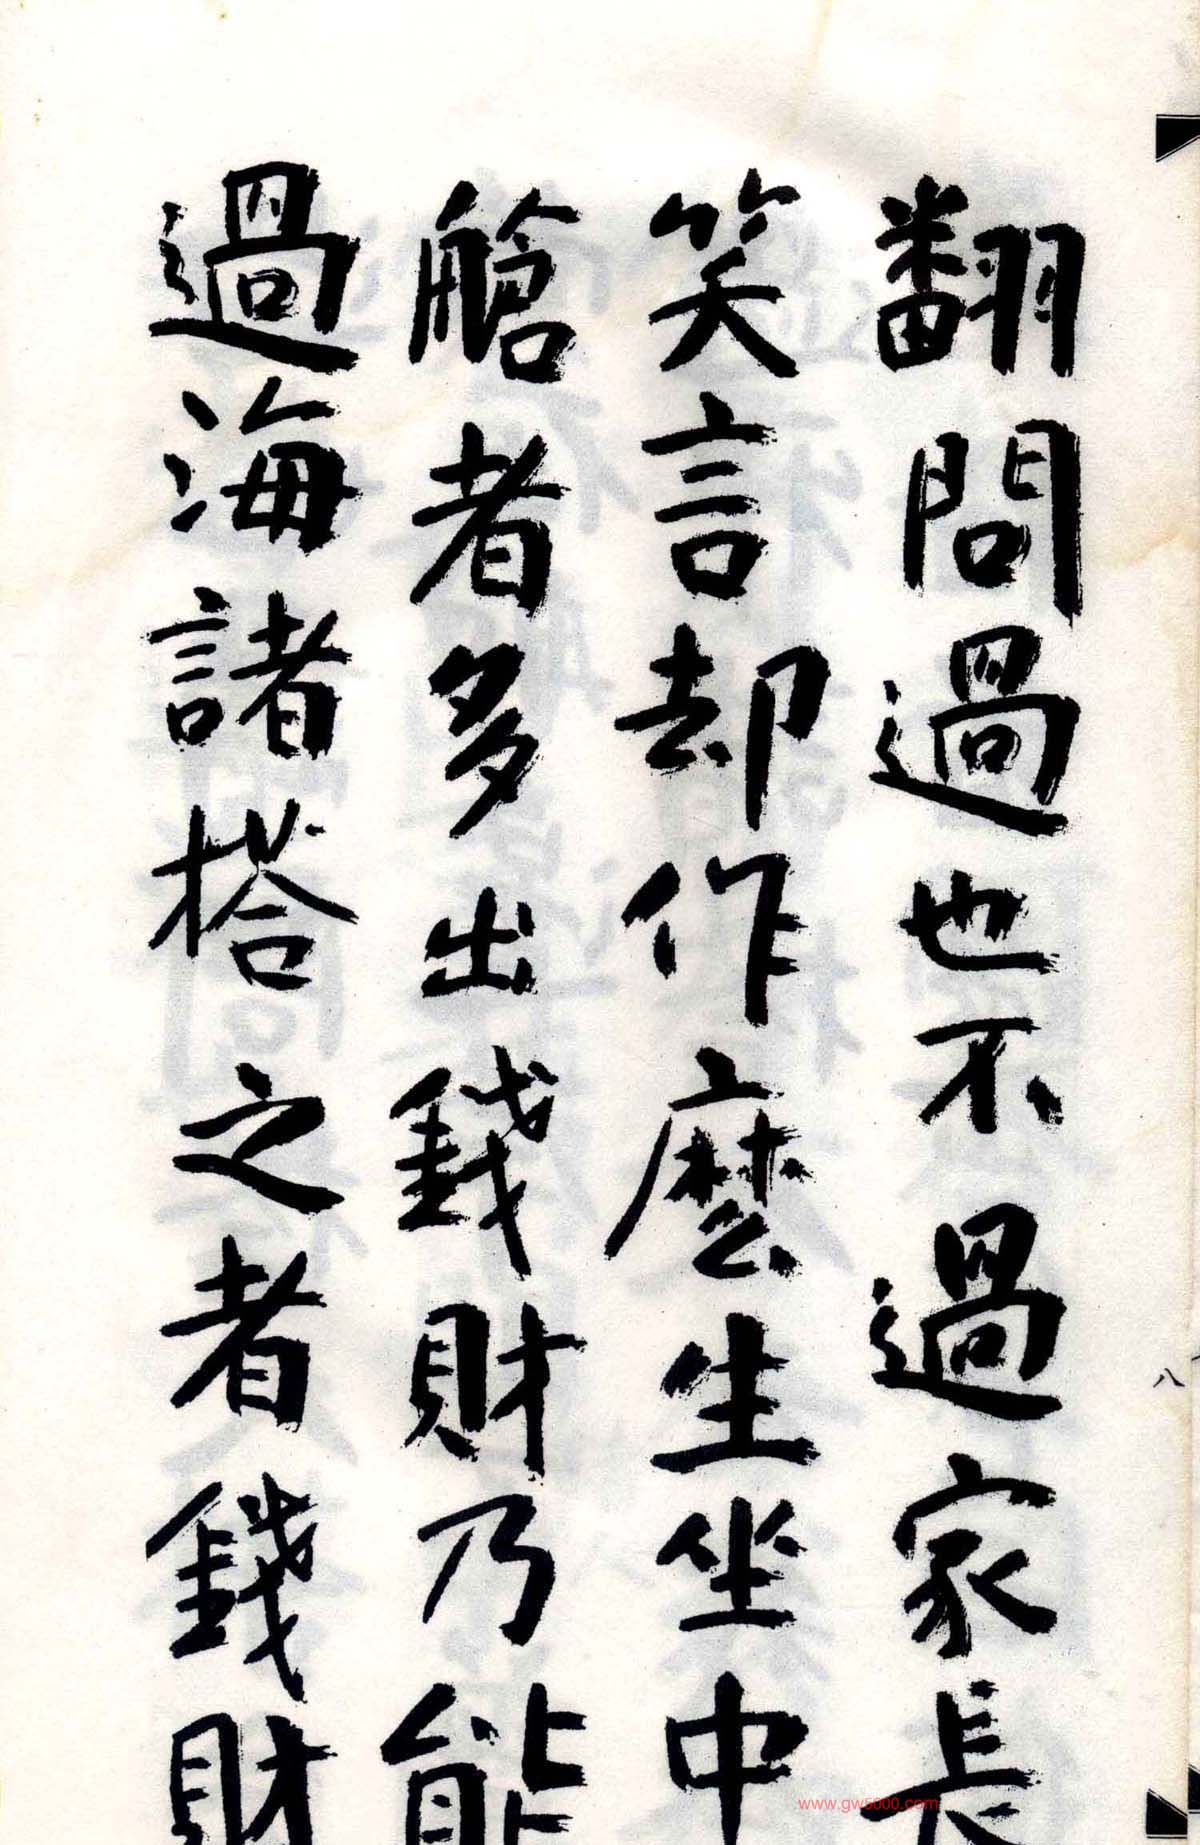 翻問過也不過家長
笑言却作麽生坐中
艙者多出錢財乃能
過海諸搭之者錢財
八
www.gw5000.com